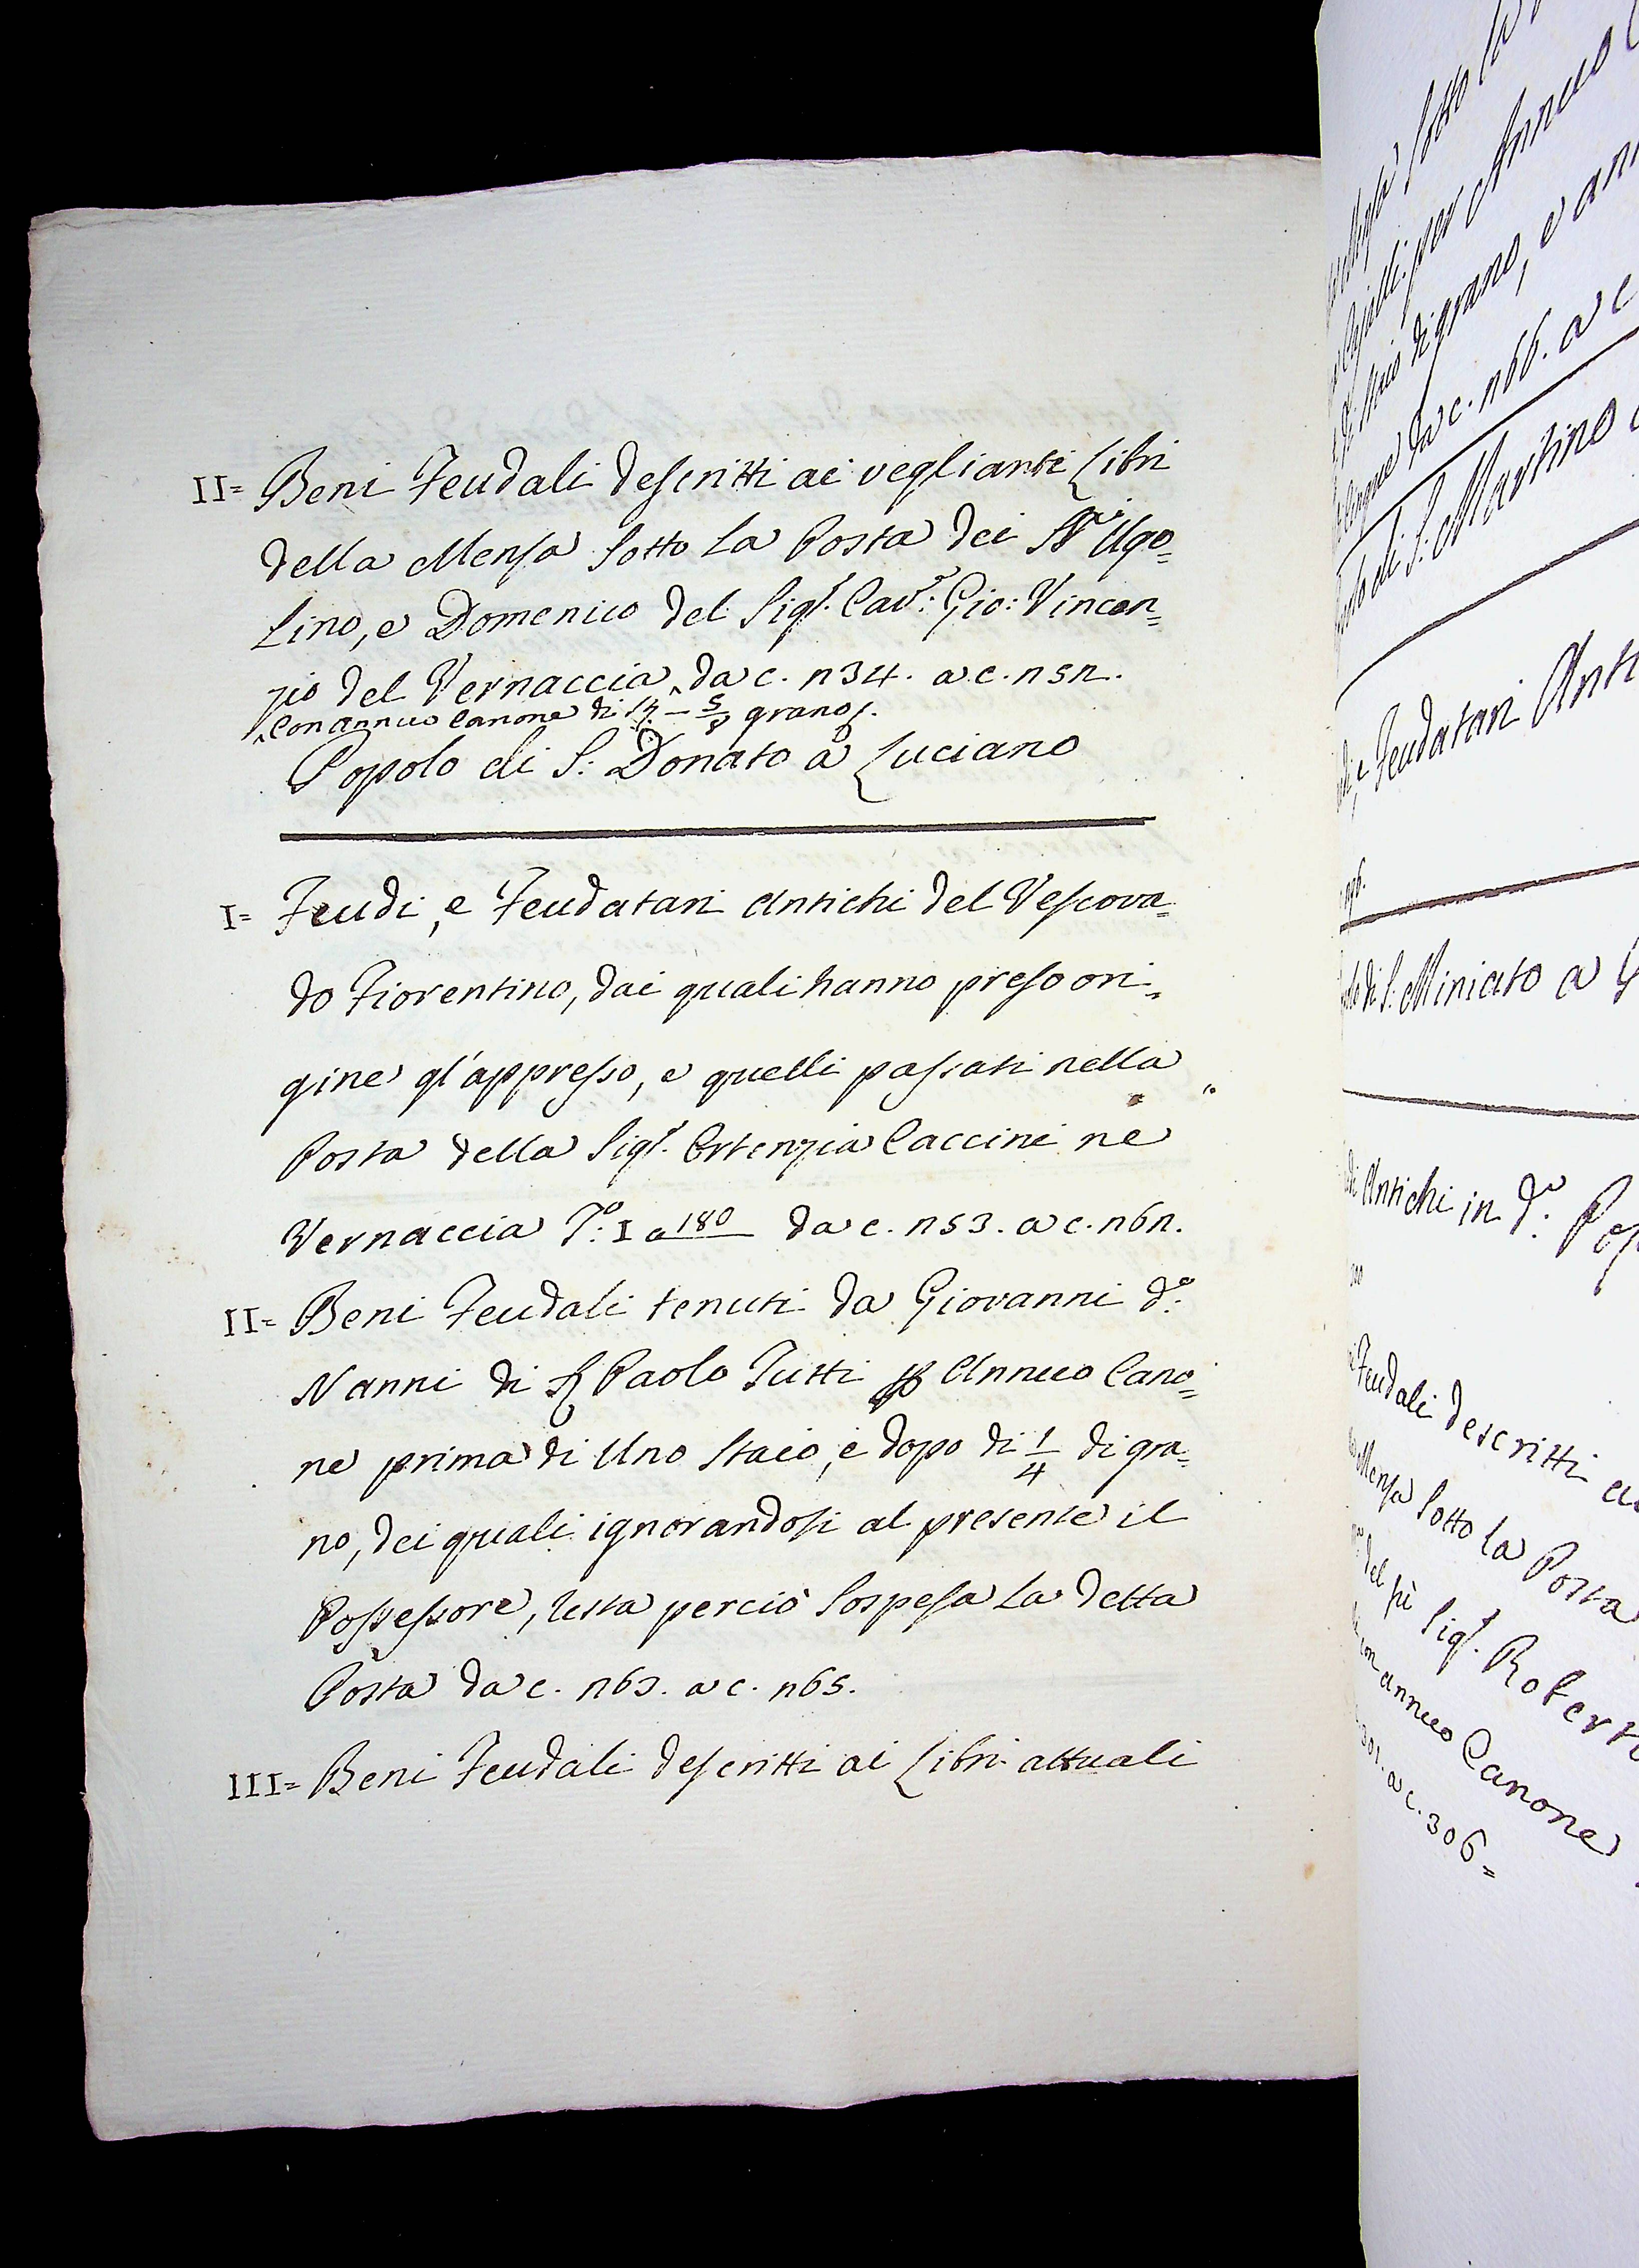 II= Beni Feudali descritti ai veglianti Libri
della Mensa sotto la Posta dei SS.ri Ugo=
lino, e Domenico del Sig.r Cav.r: Gio: Vincen=
zio del Vernaccia ^ da c. 234. a c. 252.
^ con annuo canone di St. — 5/8 grano
Popolo di S: Donato a Luciano
I= Feudi, e Feudatari Antichi del Vescova=
do Fiorentino, dai quali hanno preso ori=
gine gl'appresso, e quelli passati nella
Posta della Sig.ra Ortenzia Caccini ne
Vernaccia I a 180 da c. 253. a c. 262.
II= Beni Feudali tenuti da Giovanni d.o
Nanni di Paolo Tutti Annuo Cano=
ne prima di Uno Staio, e dopo di 1/4 di gra=
no, dei quali ignorandosi al presente il
Possessore, resta perciò sospesa la detta
Posta da c. 263. a c. 265.
III= Beni Feudali descritti ai Libri attuali
sotto la
per Annuo
di grano, e ann
da c. 266. a c
di S: Martino
e Feudatari Anti
di S: Miniato a
Antichi in d.o Pop
Feudali descritti a
Mensa sotto la Posta
del Sig.r Robert
con annuo Canone
301. a c. 306=